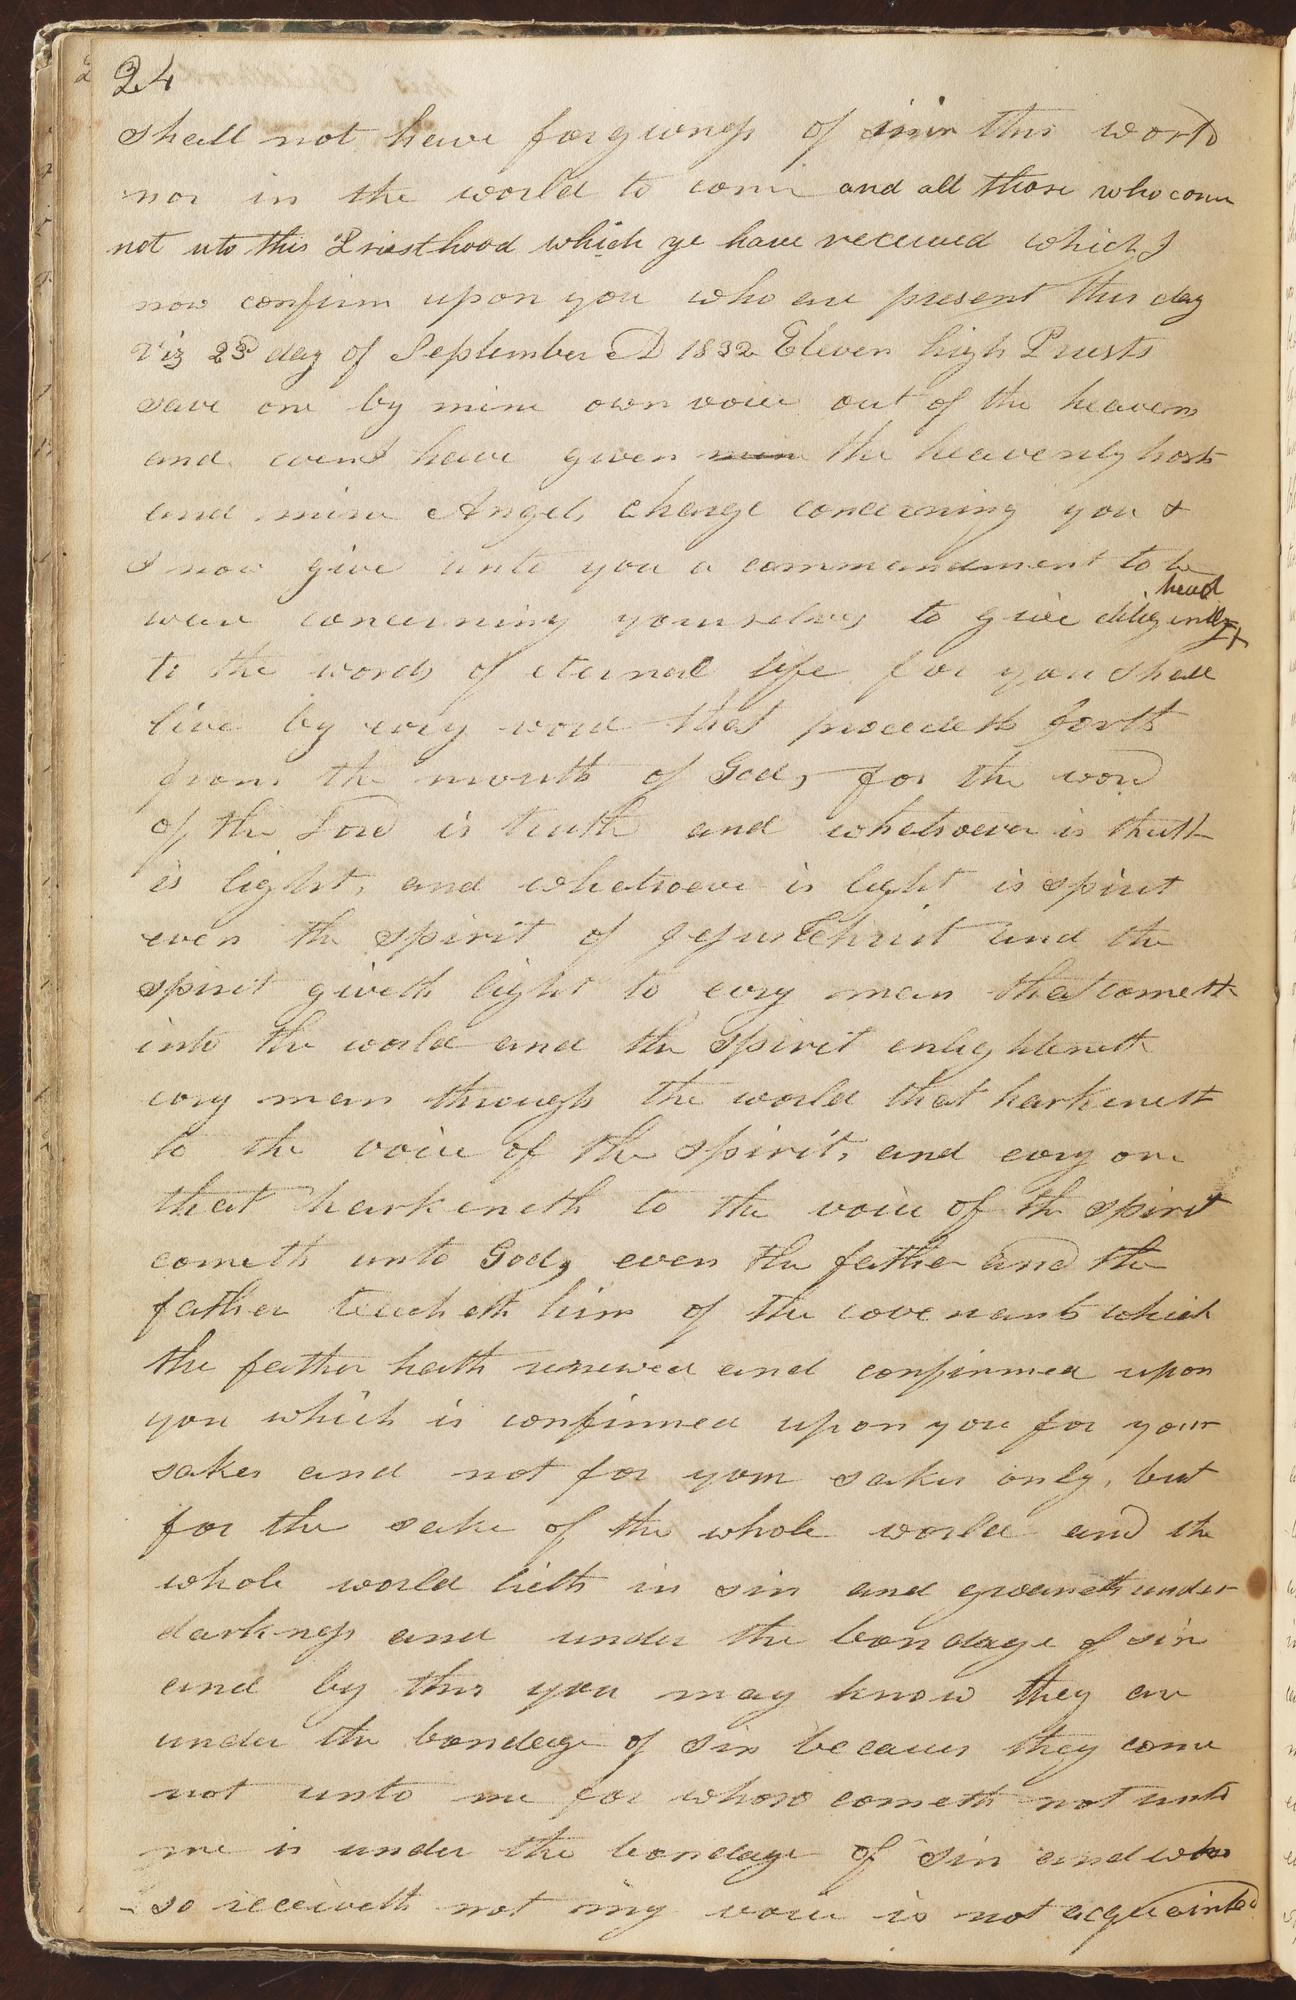 24
shall not have forgivness of sin in this world
nor in the world to come and all those who come
not uto this Priesthood which ye have received which I
now confirm upon you who are present this day
viz 23d day of September AD 1832 Eleven high Priests
save one by mine own voice out of the heavens
and even I have given mine the heavenly hosts
and mine Angels charge concerning you &
I now give unto you a commandment to be
head
ware concerning yourselves to give diligently
to the words of eternal life for you shall
live by evry word that procedeth forth
from the mouth of God, for the word
of the Lord is truth and whatsoever is thuth
is light, and whatsoever is light is spirit
even the spirit of Jesus Christ and the
spirit giveth light to evry man that cometh
into the world and the spirit enlighteneth
evry man through the world that harkeneth
to the voice of the spirit, and evry one
that harkeneth to the voice of the spirit
cometh unto God, even the father and the
father teacheth him of the covenants which
the father hath renewed and confirmed upon
you which is confirmed upon you for your
sakes and not for your sakes only, but
for the sake of the whole world and the
whole world lieth in sin and groaneth under
darkness and under the bondage of sin
and by this you may know they are
under the bondage of sin becaues they come
not unto me for whoso cometh not unto
me is under the bondage of sin and who
-so receiveth not my voice is not acquainted